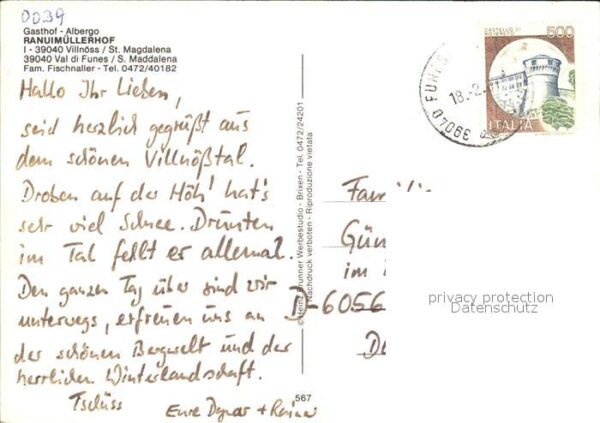 0039
Gasthof - Albergo
RANUIMÜLLERHOF
I - 39040 Villnöss / St. Magdalena
39040 Val di Funes / S. Maddalena
Fam. Fischnaller - Tel. 0472/40182
Hallo Ihr Lieben,
seid herzlich gegrüßt aus
dem schönen Villnößtal.
Droben auf der Höh' hat's
sehr viel Schnee. Drunten
im Tal fehlt er allemal.
Den ganzen Tag über sind wir
unterwegs, erfreuen uns an
der schönen Bergwelt und der
herrlichen Winterlandschaft.
Tschüss
Eure Dagmar + Rainer
© Heinz Brunner Werbestudio - Brixen - Tel. 0472/24201
Nachdruck verboten - Riproduzione vietata
567
500
ITALIA
39040
18.-2.
Fam
Gün
im
D-6056
privacy protection
Datenschutz